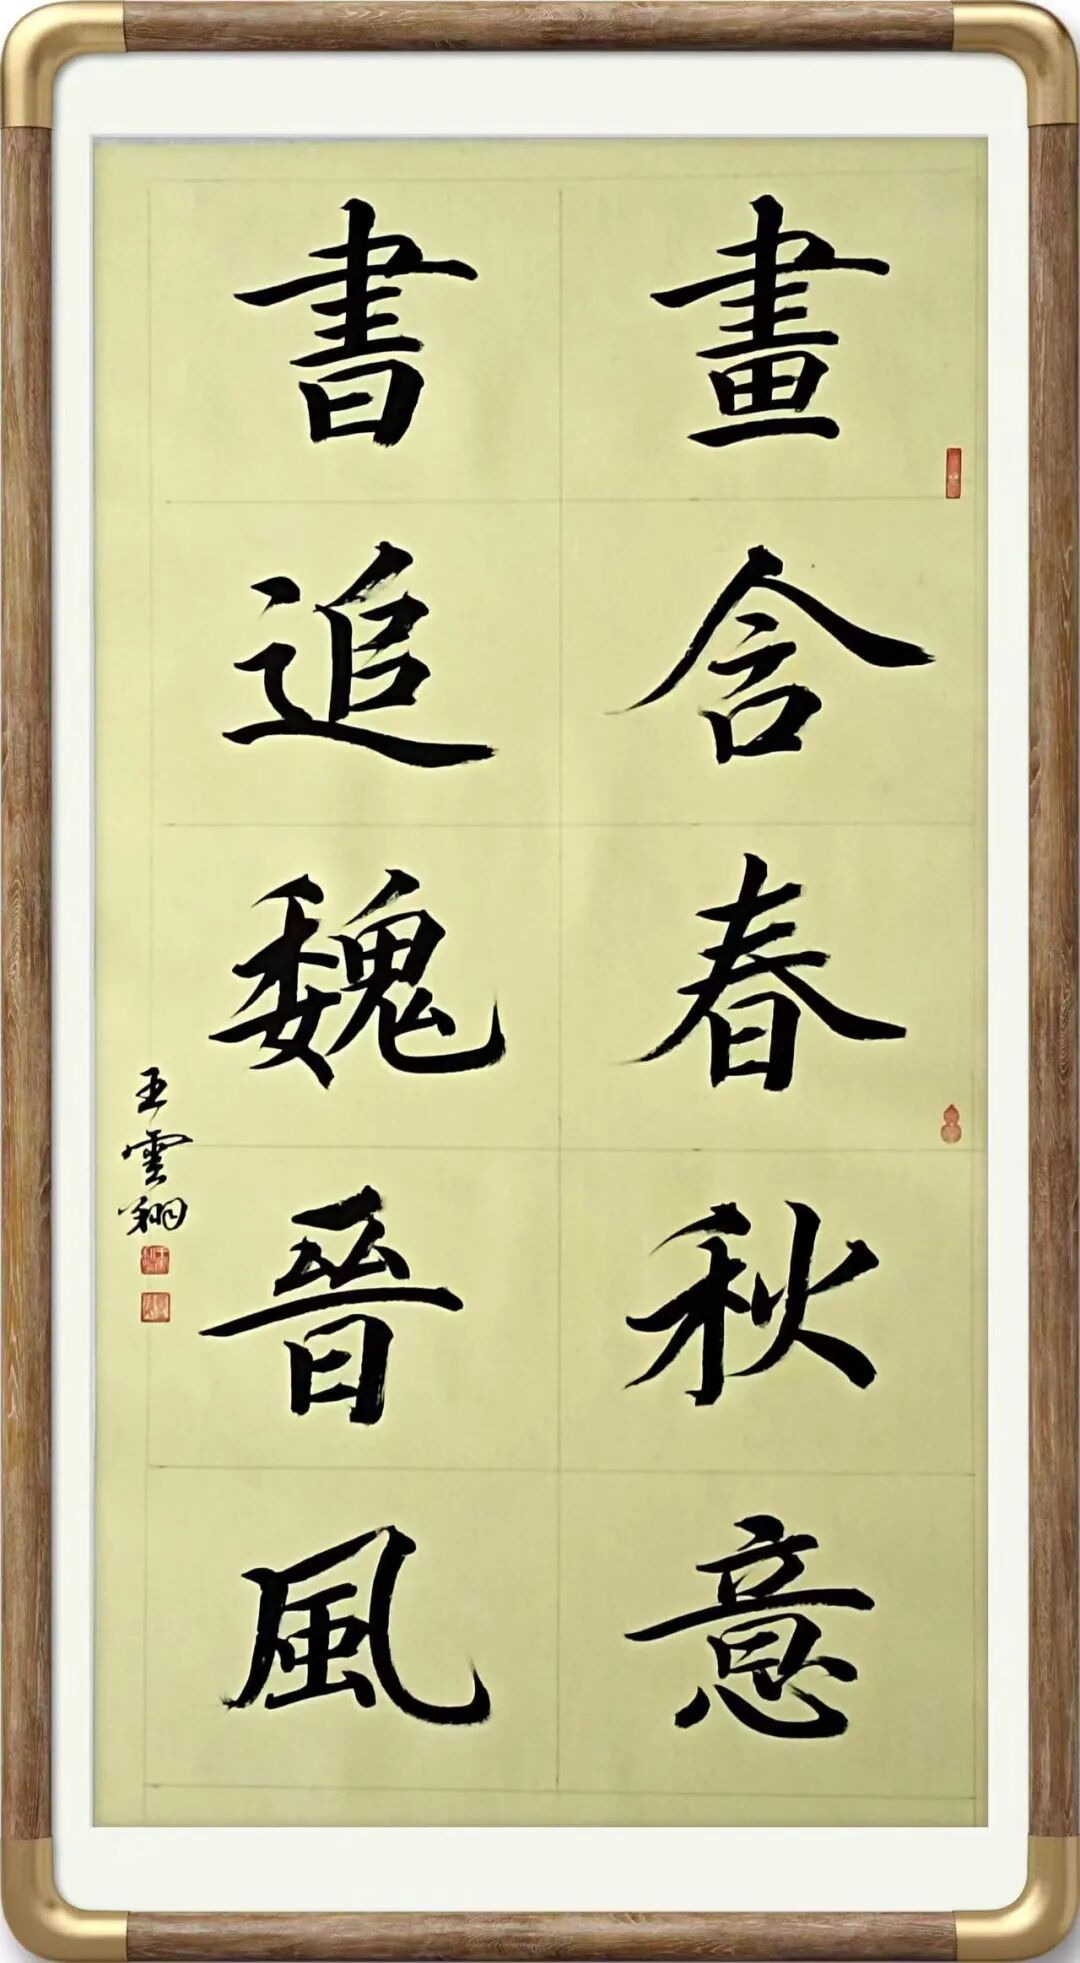 畫含春秋意
書追魏晉風
王雲翔